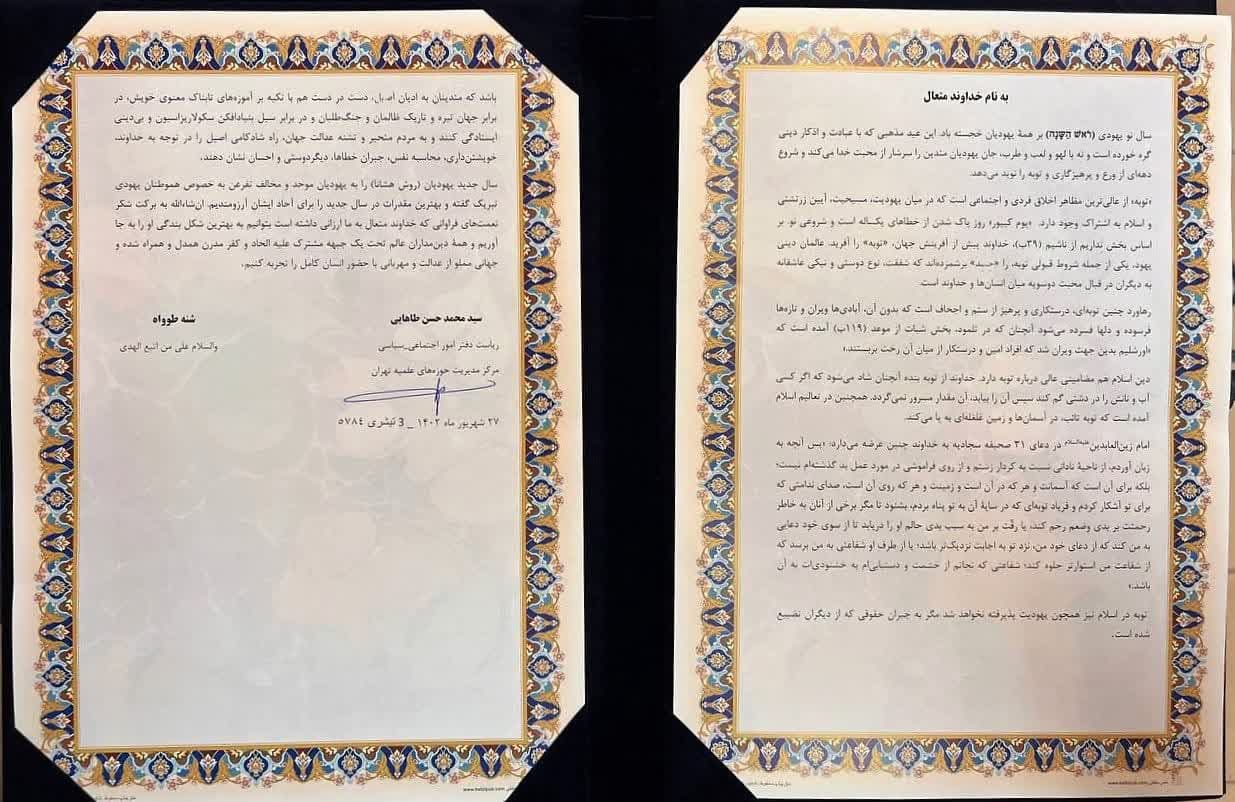 به نام خداوند متعال
سال نو یهودی (רֹאשׁ הַשָּׁנָה) بر همهٔ یهودیان خجسته باد. این عید مذهبی که با عبادت و اذکار دینی
گره خورده است و نه با لهو و لعب و طرب، جان یهودیان متدین را سرشار از محبت خدا می‌کند و شروع
دهه‌ای از ورع و پرهیزگاری و توبه را نوید می‌دهد.
«توبه» از عالی‌ترین مظاهر اخلاق فردی و اجتماعی است که در میان یهودیت، مسیحیت، آیین زرتشتی
و اسلام به اشتراک وجود دارد. «یوم کیپور» روز پاک شدن از خطاهای یکساله است و شروعی نو. بر
اساس بخش نداریم از ناشیم (۳۹ب)، خداوند پیش از آفرینش جهان، «توبه» را آفرید. عالمان دینی
یهود، یکی از جمله شروط قبولی توبه، را «حسد» برشمرده‌اند که شفقت، نوع دوستی و نیکی عاشقانه
به دیگران در قبال محبت دوسویه میان انسان‌ها و خداوند است.
رهاورد چنین توبه‌ای، درستکاری و پرهیز از ستم و اجحاف است که بدون آن، آبادی‌ها ویران و تازه‌ها
فرسوده و دلها فسرده می‌شود آنچنان که در تلمود، بخش شبات از موعد (۱۱۹ب) آمده است که
«اورشلیم بدین جهت ویران شد که افراد امین و درستکار از میان آن رخت بربستند.»
دین اسلام هم مضامینی عالی درباره توبه دارد. خداوند از توبه بنده آنچنان شاد می‌شود که اگر کسی
آب و نانش را در دشتی گم کند سپس آن را بیابد، آن مقدار مسرور نمی‌گردد. همچنین در تعالیم اسلام
آمده است که توبه تائب، در آسمان‌ها و زمین غلغله‌ای به پا می‌کند.
امام زین‌العابدین علیه‌السلام در دعای ۳۱ صحیفه سجادیه به خداوند چنین عرضه می‌دارد: «پس آنچه به
زبان آوردم، از ناحیهٔ نادانی نسبت به کردار زشتم و از روی فراموشی در مورد عمل بد گذشته‌ام نیست؛
بلکه برای آن است که آسمانت و هر که در آن است و زمینت و هر که روی آن است، صدای ندامتی که
برای تو آشکار کردم و فریاد توبه‌ای که در سایهٔ آن به تو پناه بردم، بشنوند تا مگر برخی از آنان به خاطر
رحمتش بر بدی وضعم رحم کند، یا رقّت بر من به سبب بدی حالم او را دریابد تا از سوی خود دعایی
به من کند که از دعای خود من، نزد تو به اجابت نزدیک‌تر باشد؛ یا از طرف او شفاعتی به من برسد که
از شفاعت من استوارتر جلوه کند؛ شفاعتی که نجاتم از خشمت و دستیابی‌ام به خشنودی‌ات به آن
باشد.»
توبه در اسلام نیز همچون یهودیت پذیرفته نخواهد شد مگر به جبران حقوقی که از دیگران تضییع
شده است.
باشد که متدینان به ادیان اصیل، دست در دست هم با تکیه بر آموزه‌های تابناک معنوی خویش، در
برابر جهان تیره و تاریک ظالمان و جنگ‌طلبان و در برابر سیل بنیادافکن سکولاریزاسیون و بی‌دینی
ایستادگی کنند و به مردم متحیر و تشنه عدالت جهان، راه شادکامی اصیل را در توجه به خداوند،
خویشتن‌داری، محاسبه نفس، جبران خطاها، دیگردوستی و احسان نشان دهند.
سال جدید یهودیان (روش هشانا) را به یهودیان موحد و مخالف تفرعن به خصوص هموطنان یهودی
تبریک گفته و بهترین مقدرات در سال جدید را برای آحاد ایشان آرزومندیم. ان‌شاءالله به برکت شکر
نعمت‌های فراوانی که خداوند متعال به ما ارزانی داشته است بتوانیم به بهترین شکل بندگی او را به جا
آوریم و همهٔ دین‌مداران عالم تحت یک جبهه مشترک علیه الحاد و کفر مدرن همدل و همراه شده و
جهانی مملو از عدالت و مهربانی با حضور انسان کامل را تجربه کنیم.
سید محمد حسن طاهایی
شنه طوواه
ریاست دفتر امور اجتماعی_سیاسی
والسلام علی من اتبع الهدی
مرکز مدیریت حوزه‌های علمیه تهران
۲۷ شهریور ماه ۱۴۰۲ _ 3 تیشری ۵۷۸٤